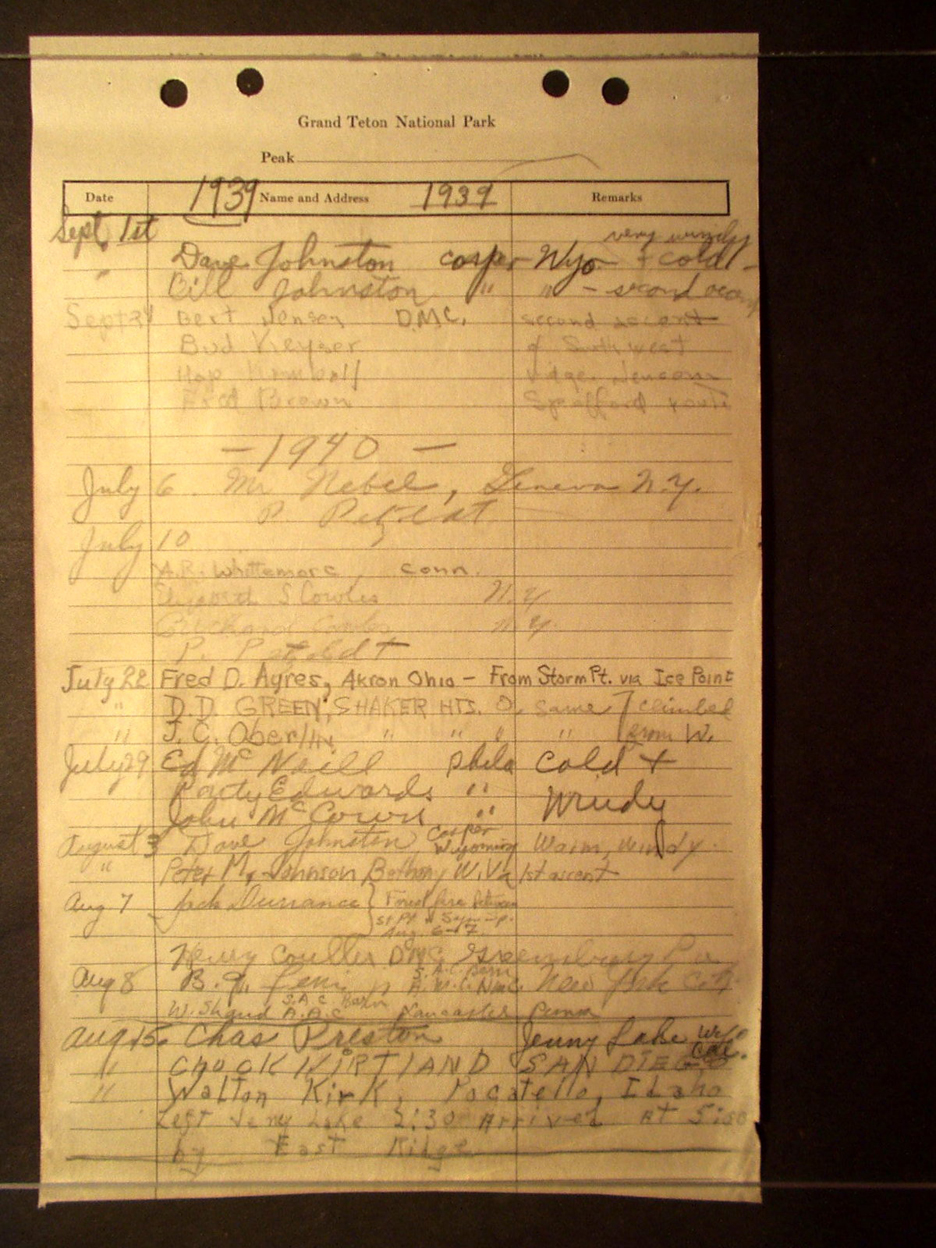 Grand Teton National Park
Peak
Date 1939 Name and Address 1939 Remarks
Sept 1st very windy
" Dave Johnston Casper Wyo + cold -
Bill Johnston " " - second
Sept 24 Bert Jensen D.M.C. second ascent
Bud Keyser of Southwest
Hap Kimball ridge.
Fred Brown Spafford route
- 1940 -
July 6 Mr Nebel, Geneva N.Y.
P. Petzoldt
July 10
A.R. Whittemore, Conn.
Elizabeth S Cowles N.Y.
Cowles N.Y.
P. Petzoldt
July 22 Fred D. Ayres, Akron Ohio - From Storm Pt. via Ice Point
" D.D. GREEN, SHAKER HTS. O. same climbed
" J.C. Oberlin " " " " from W.
July 29 Ed McNeill Phila Cold +
Party Edwards " Windy
John McCown "
August 3 Dave Johnston Casper Wyoming Warm, windy.
" Peter M. Johnson Bethany W. Va 1st ascent
Aug 7 Jack Durrance Forest fire between
St Pt & Symmp.
Aug. 6-7
Henry Coulter DMC Greensburg Pa
Aug 8 B. S.A.C. Bern A.M.C. New York City
W. S.A.C. A.A.C Lancaster Penna
Aug 15 Chas Preston Jenny Lake
" CHUCK KIRTLAND SAN DIEGO Cal.
" Walton Kirk, Pocatello, Idaho
Left Jenny Lake 2:30 Arrived At 5:30
by East Ridge